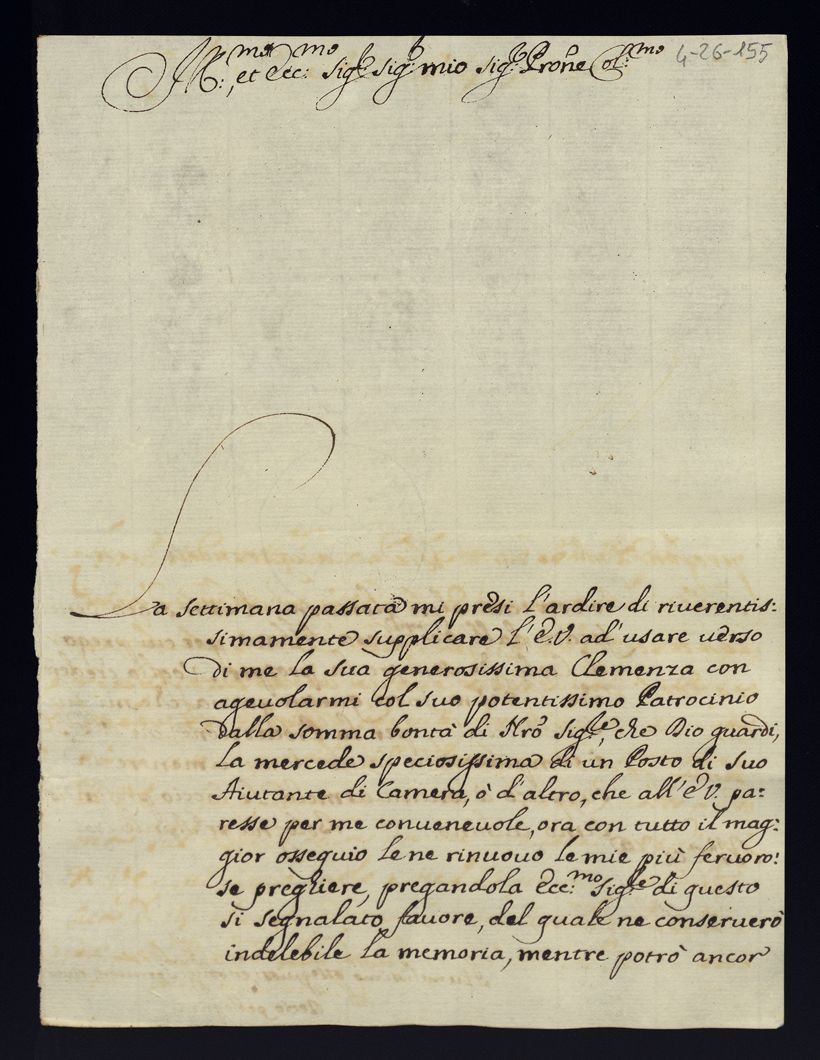 Ill:mo et Ecc:mo Sigr: Sigr: mio Sigr: Prõne Col:mo 4-26-155
La settimana passata mi presi l'ardire di riverentis:
simamente supplicare l'E.V. ad' usare verso
di me la sua generosissima Clemenza con
agevolarmi col suo potentissimo Patrocinio
dalla somma bontà di Nrõ Sigle, che Dio guardi,
la mercede speciosissima di un Posto di suo
Aiutante di Camera, ò d'altro, che all'E.V. pa:
resse per me convenevole, ora con tutto il mag:
gior ossequio le ne rinuovo le mie più fervoro:
se preghiere, pregandola Ecc:mo Sigle di questo
si segnalato favore, del quale ne conserverò
indelebile la memoria, mentre potrò ancor